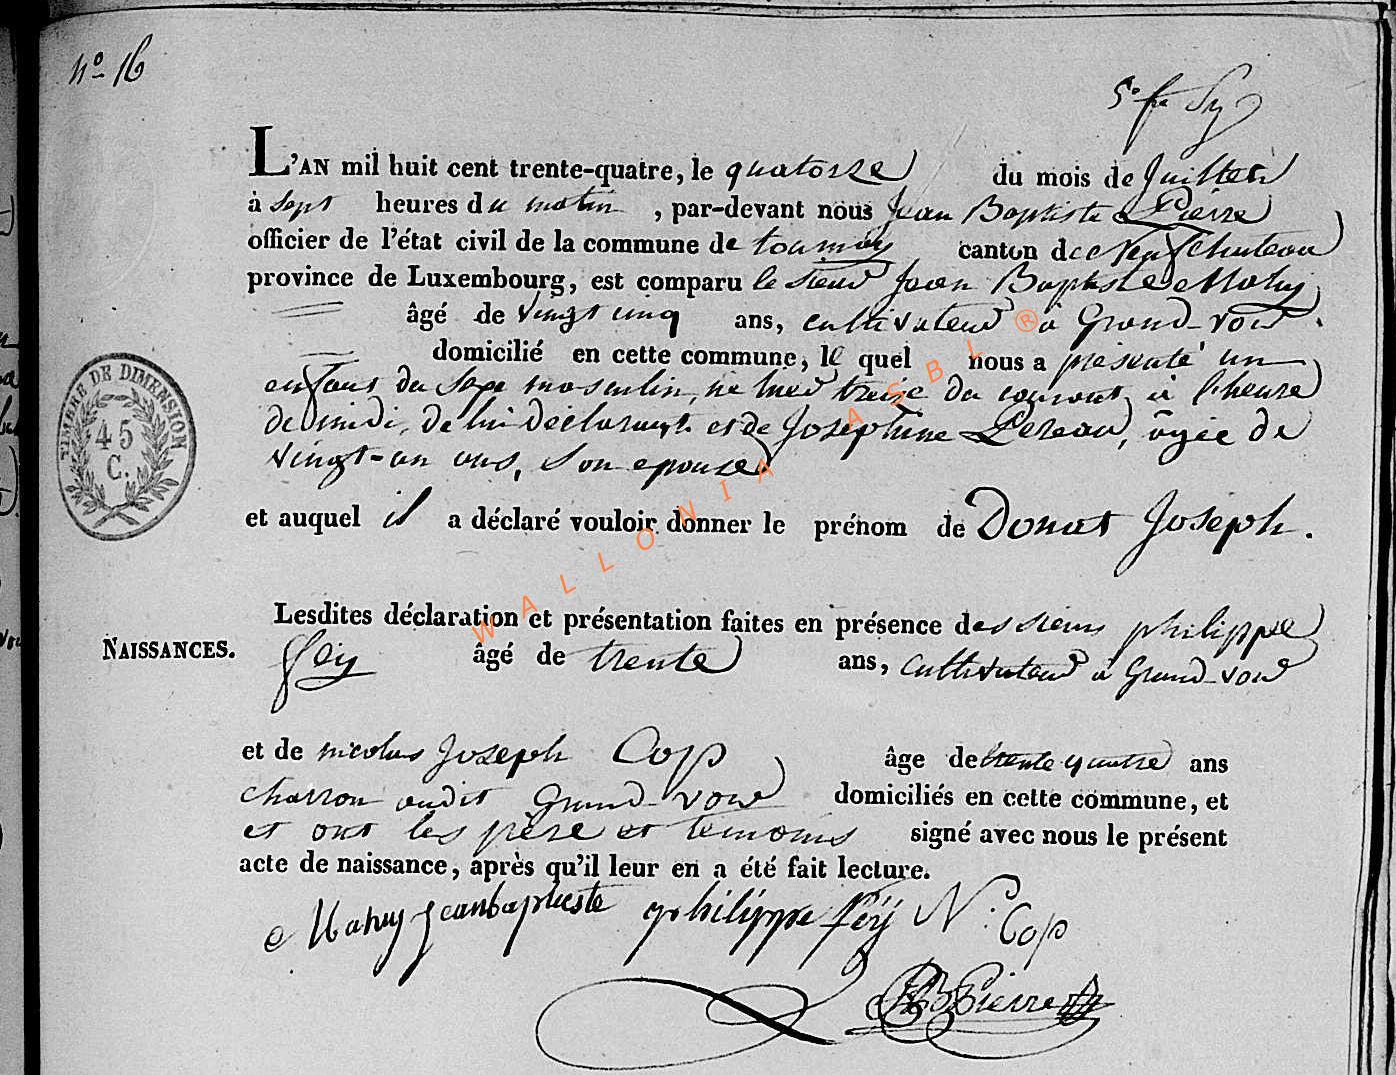 n.º 16
5.e f.t
L'AN mil huit cent trente-quatre, le quatorze du mois de Juillet
à sept heures du matin, par-devant nous Jean Baptiste Pierre
officier de l'état civil de la commune de tournay canton de Neufchateau
province de Luxembourg, est comparu le sieur Jean Baptiste Mahy
âgé de vingt cinq ans, cultivateur à Grand-voir.
domicilié en cette commune, le quel nous a présenté un
enfant du sexe masculin, né hier treize du courant, à l'heure
de midi, de lui déclarant et de Joséphine Lereau, âgée de
vingt-un ans, son epouse
et auquel il a déclaré vouloir donner le prénom de Donat Joseph.
Lesdites déclaration et présentation faites en présence des sieurs philippe
NAISSANCES. féÿ âgé de trente ans, cultivateur à Grand-voir
et de nicolas Joseph Cop âge de trente quatre ans
charron audit Grand-voir domiciliés en cette commune, et
et ont les père et témoins signé avec nous le présent
acte de naissance, après qu'il leur en a été fait lecture.
Mahy jeanbaptieste philippe féÿ N. Cop
JB Pierre
TIMBRE DE DIMENSION
45
C.
WALLONIA ASBL ®